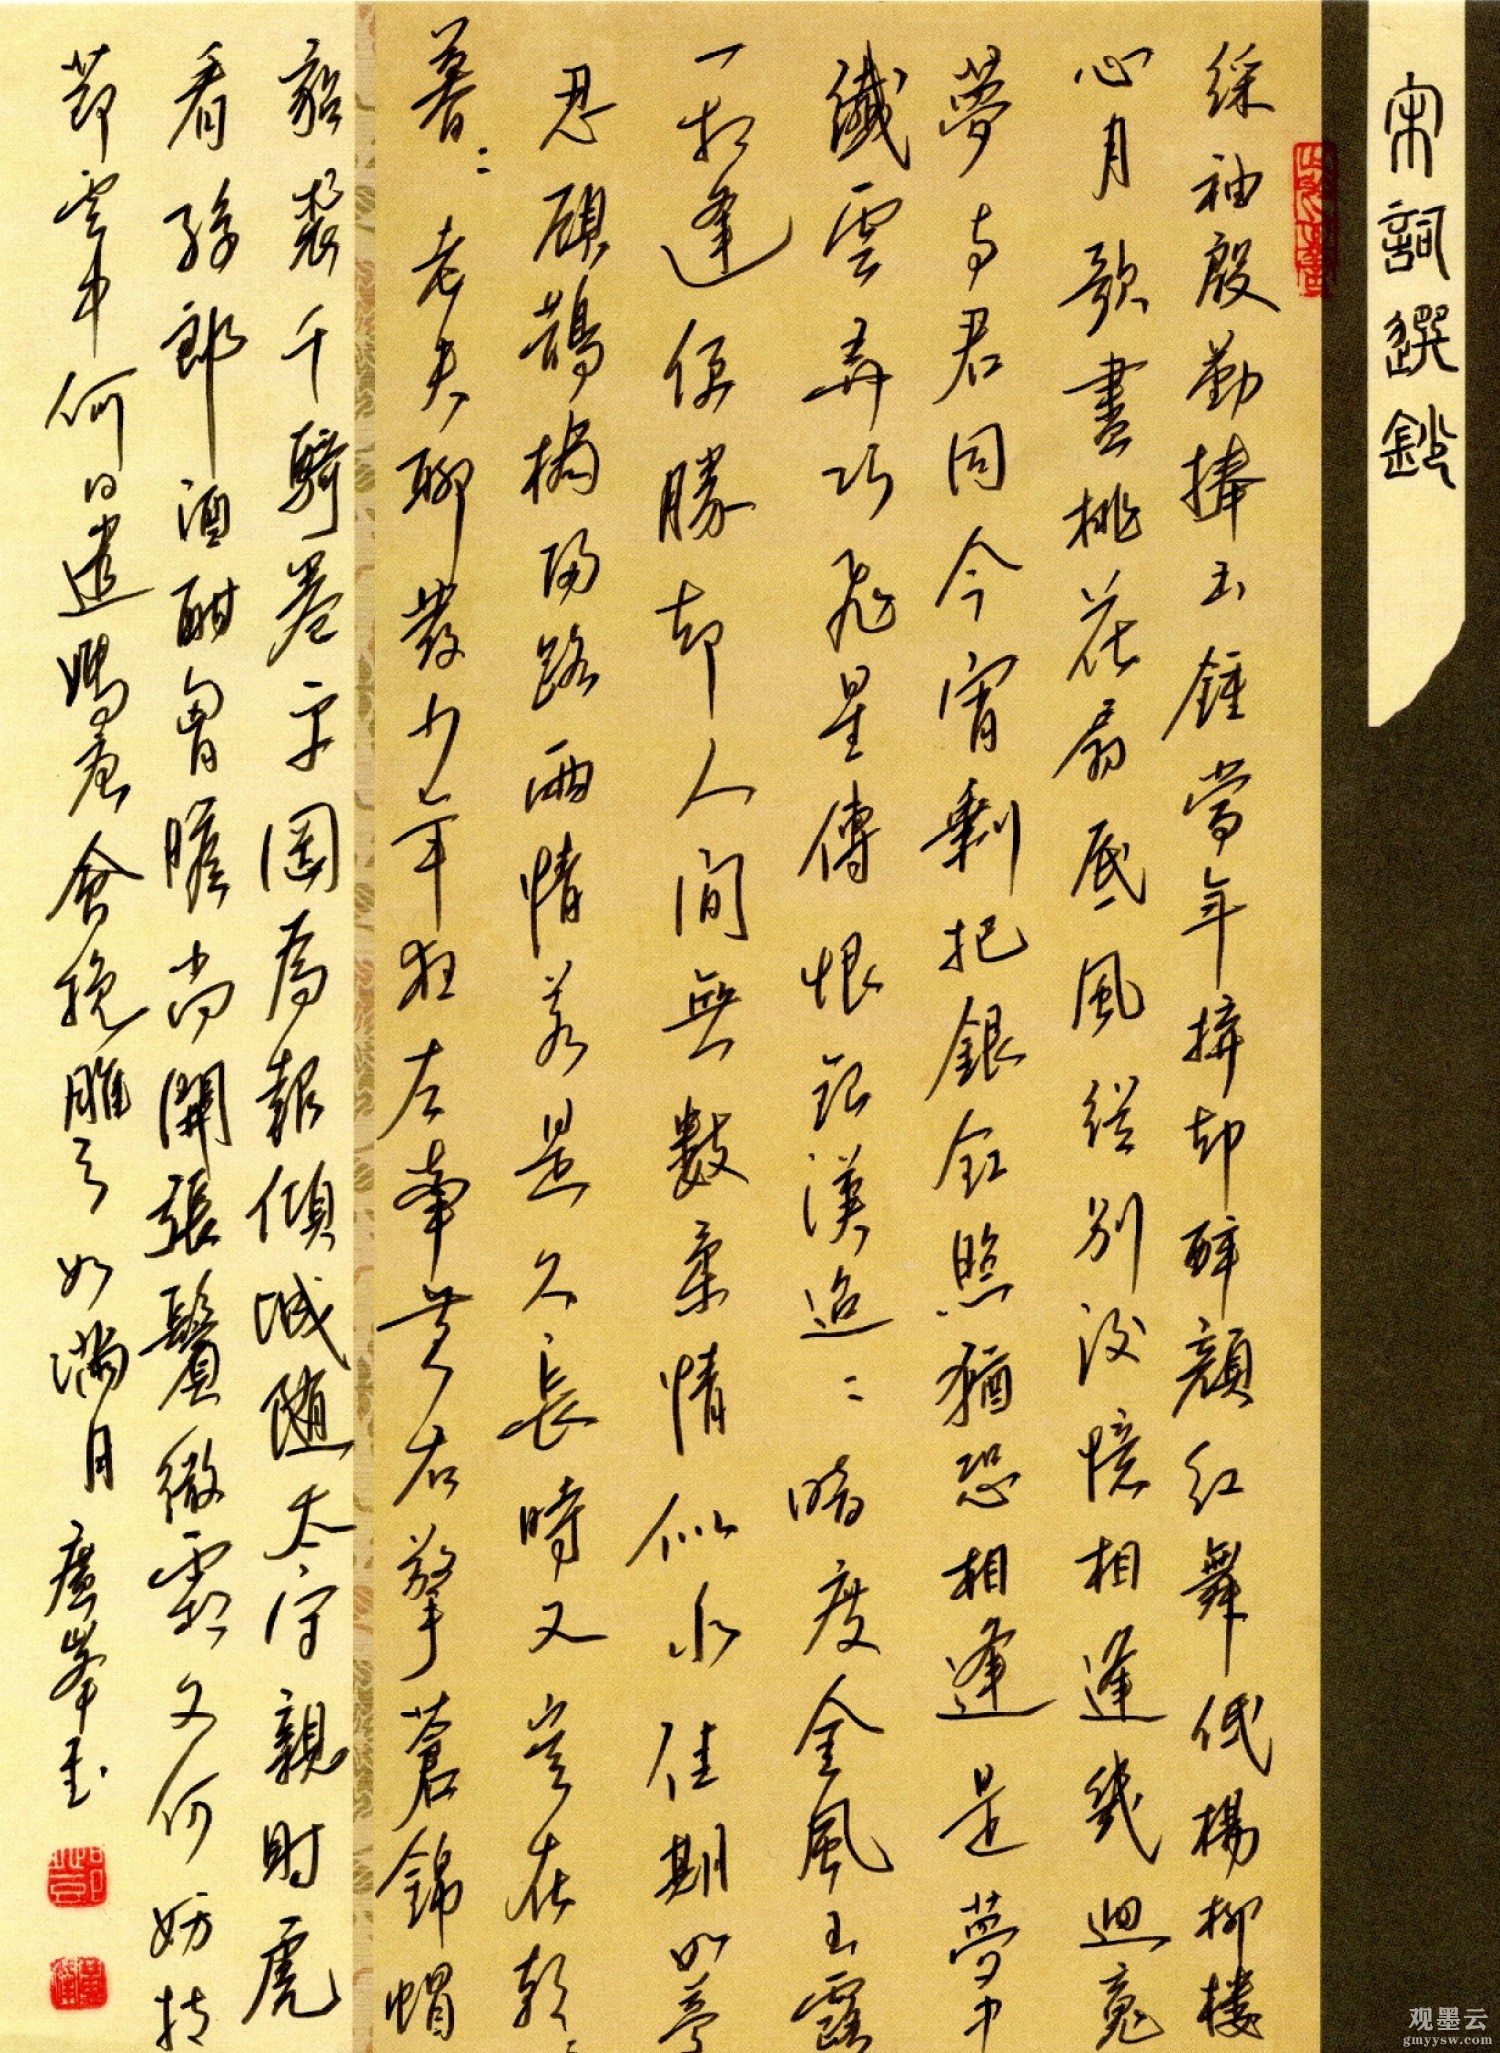 宋詞選鈔
綵袖殷勤捧玉鍾當年拚却醉顏紅舞低楊柳樓
心月歌盡桃花扇底風從別後憶相逢幾迴魂
夢与君同今宵剩把銀釭照猶恐相逢是夢中
纖雲弄巧飛星傳恨銀漢迢：暗度金風玉露
一相逢便勝却人間無數柔情似水佳期如夢
忍顧鵲橋歸路兩情若是久長時又豈在朝：
暮：老夫聊發少年狂左牽黃右擎蒼錦帽
貂裘千騎卷平岡為報傾城隨太守親射虎
看孫郎酒酣胸膽尚開張鬢微霜又何妨持
節雲中何日遣馮唐會挽雕弓如滿月廣峯書
观墨云
gmyysw.com